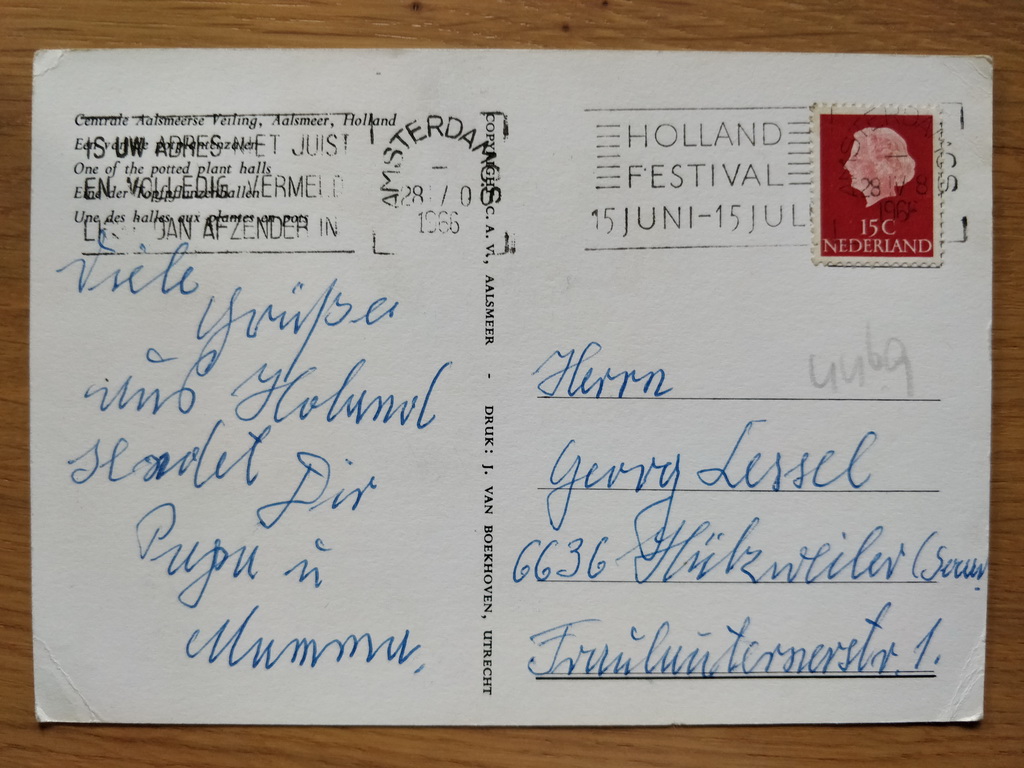 Centrale Aalsmeerse Veiling, Aalsmeer, Holland
Een van de potplantenzalen
One of the potted plant halls
Eine der Topfpflanzenhallen
Une des halles aux plantes en pots
IS UW ADRES NIET JUIST
EN VOLLEDIG VERMELD
DAN AFZENDER IN
AMSTERDAM
28 V 0
1966
HOLLAND
FESTIVAL
15 JUNI-15 JUL
28 V 8
1966
15 C
NEDERLAND
COPYRIGHT C. A. V., AALSMEER - DRUK: J. VAN BOEKHOVEN, UTRECHT
Viele
Grüße
aus Holand
sendet Dir
Papa u
Mamma,
Herrn
Georg Lessel
6636 Hülzweiler (Saar
Fraulauternerstr. 1.